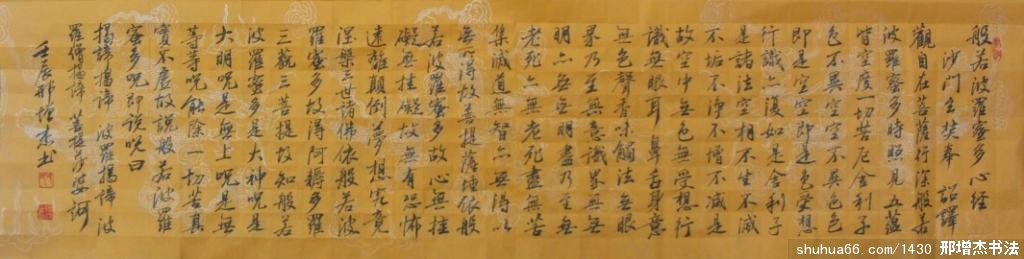 般若波羅蜜多心經
沙門玄奘奉 詔譯
觀自在菩薩行深般若
波羅蜜多時照見五蘊
皆空度一切苦厄舍利子
色不異空空不異色色
即是空空即是色受想
行識亦復如是舍利子
是諸法空相不生不滅
不垢不淨不增不減是
故空中無色無受想行
識無眼耳鼻舌身意
無色聲香味觸法無眼
界乃至無意識界無無
明亦無無明盡乃至無
老死亦無老死盡無苦
集滅道無智亦無得以
無所得故菩提薩埵依般
若波羅蜜多故心無挂
礙無挂礙故無有恐怖
遠離顛倒夢想究竟
涅槃三世諸佛依般若波
羅蜜多故得阿耨多羅
三藐三菩提故知般若
波羅蜜多是大神呪是
大明呪是無上呪是無
等等呪能除一切苦真
實不虛故說般若波羅
蜜多呪即說呪曰
揭諦揭諦 波羅揭諦 波
羅僧揭諦 菩提莎婆訶
壬辰邢增杰书
shuhua66.com/1430 邢增杰书法